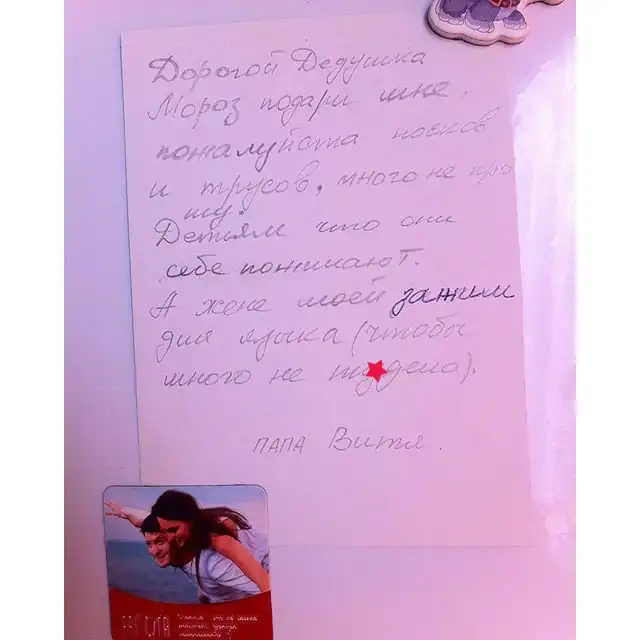 Дорогой Дедушка
Мороз подари мне,
пожалуйста носков
и трусов, много не про
шу.
Детям что они
себе понимают.
А жене моей зажим
для языка (чтобы
много не пи★дела).
ПАПА Витя.